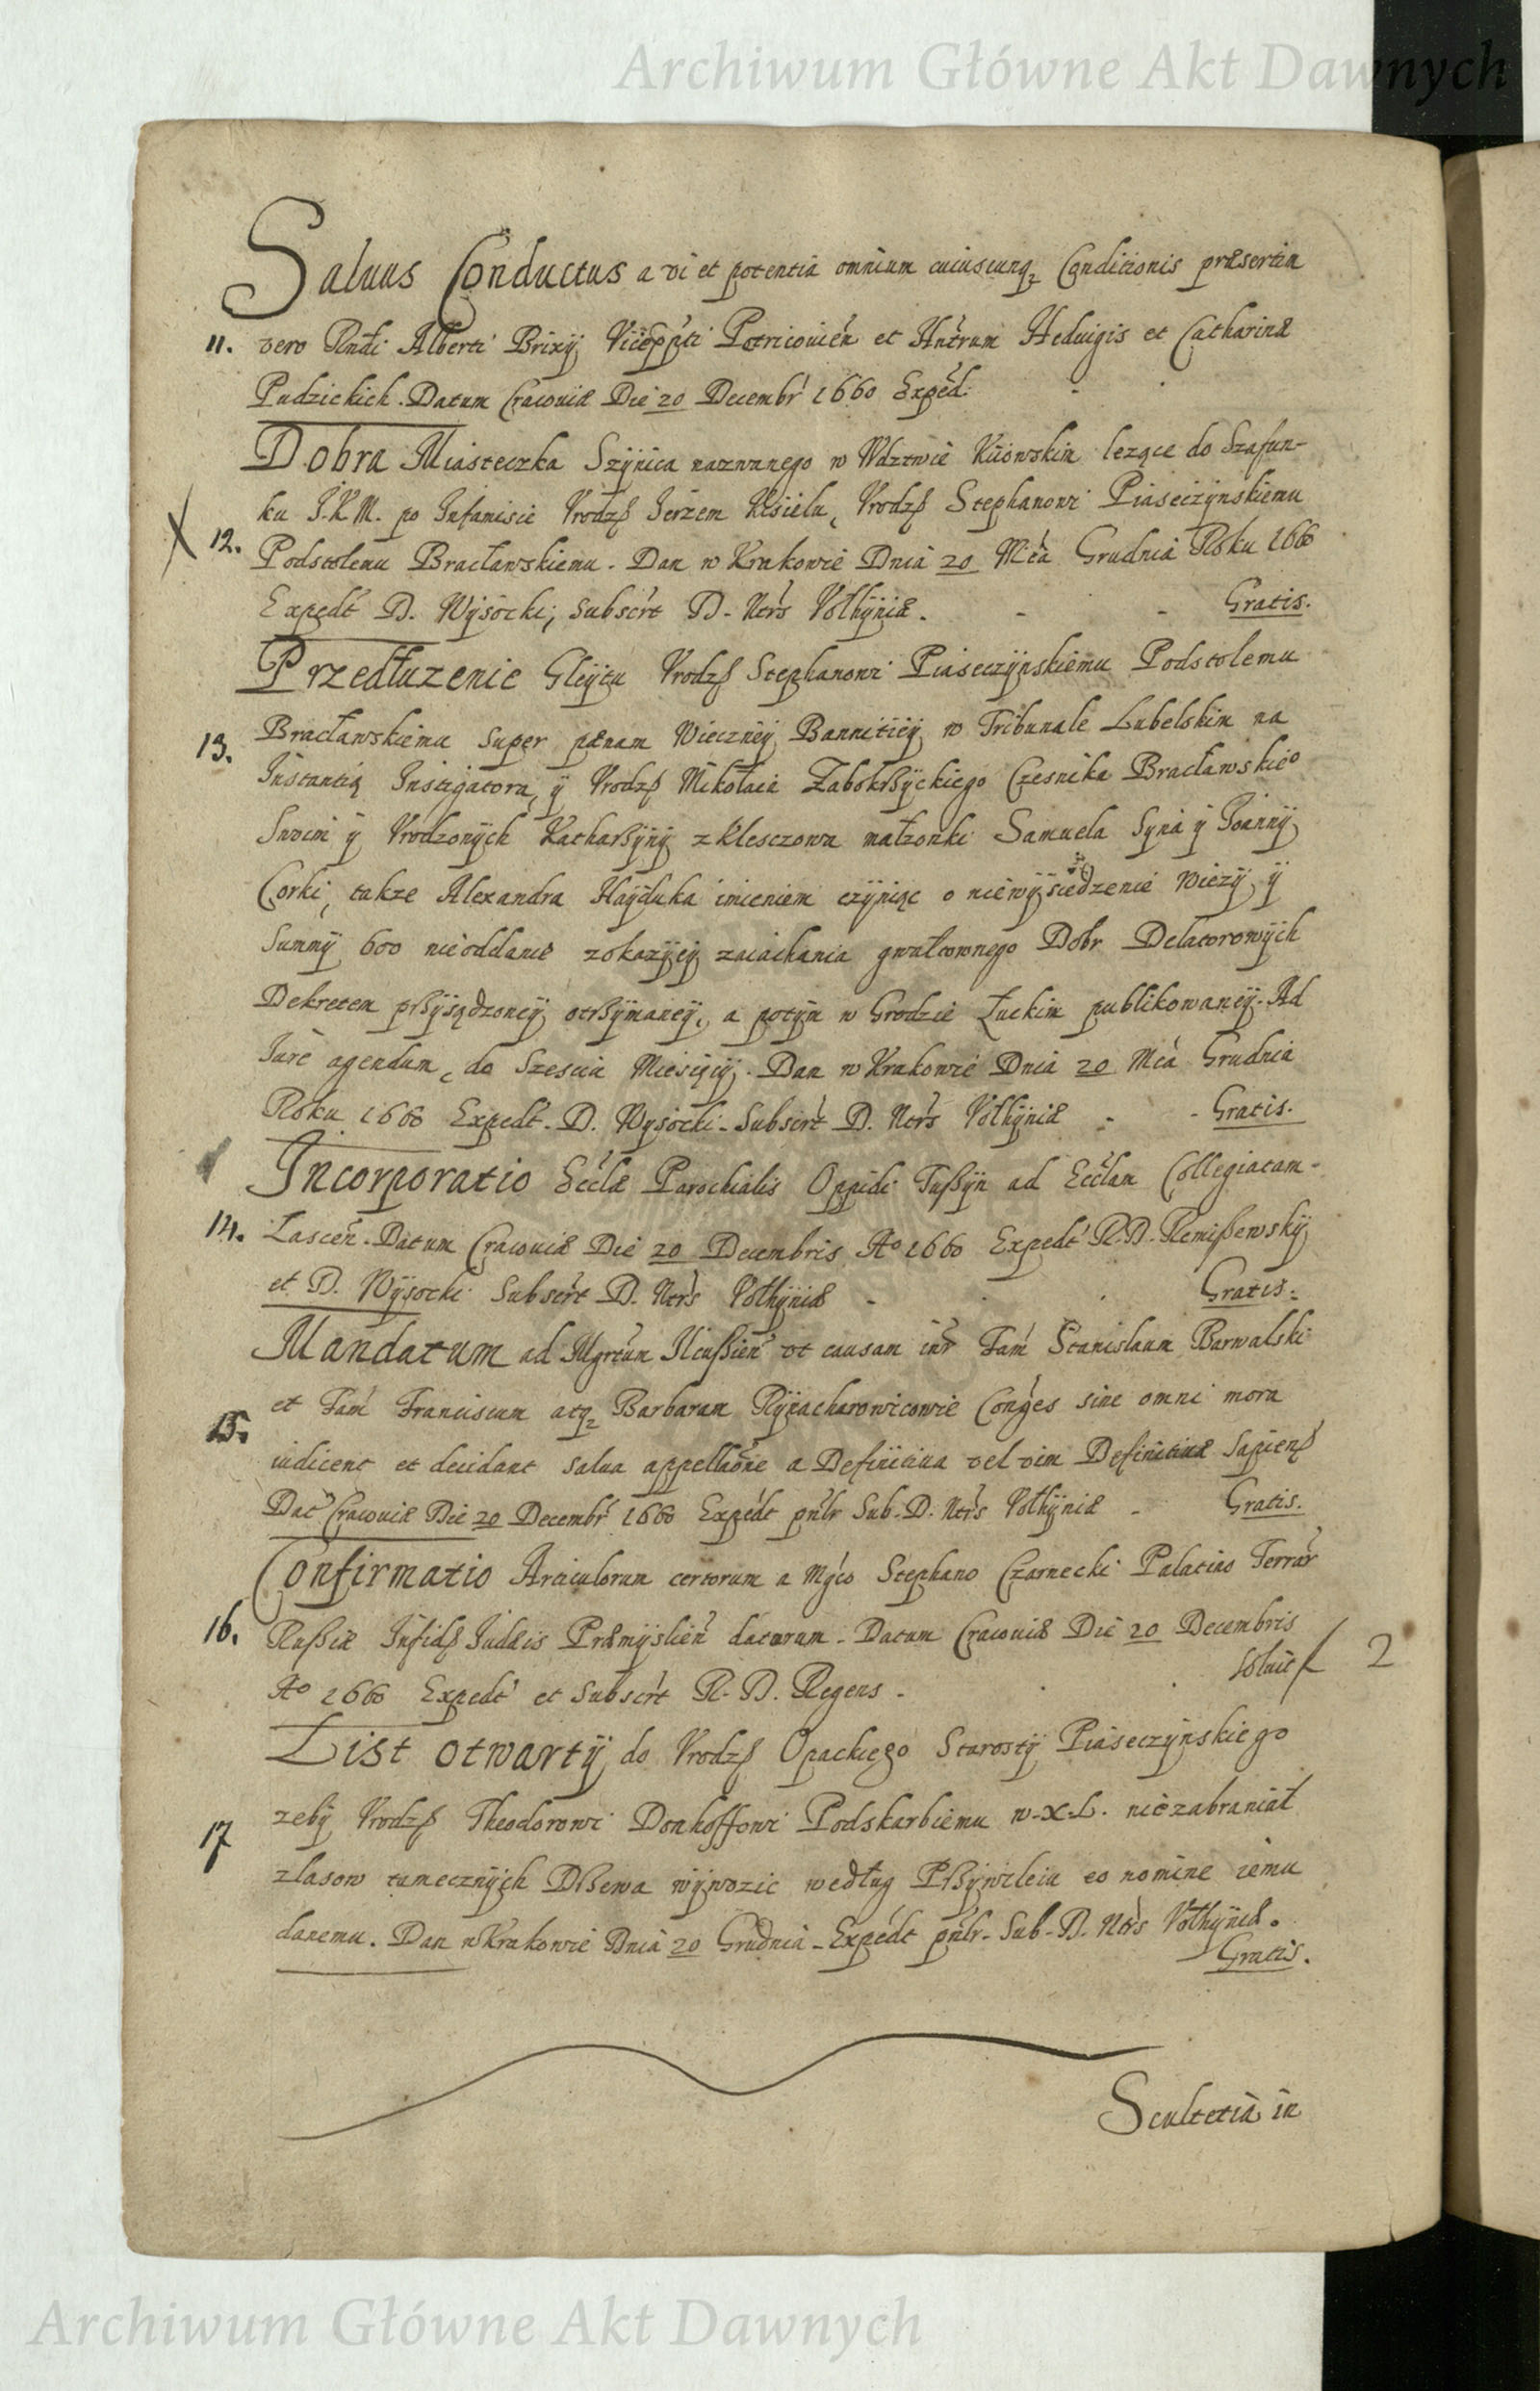 Archiwum Główne Akt Dawnych
Saluus Conductus a vi et potentia omnium cuiuscunq₂ Conditionis præsertim
11. vero Rndi Alberti Brixÿ Viceppti Petricouień et Hntrum Heduigis et Catharinæ
Pudzickich. Datum Cracouiæ Die 20 Decembr 1660 Exped.
Dobra Miasteczka Szÿnica nazwanego w Wdztwie Kiiowskim lezące do Szafun-
ku J.K.M. po Infamisie Vrodzß Jerzem Kisielu, Vrodzß Stephanowi Piaseczÿnskiemu
12. Podstolemu Bracławskiemu. Dan w Krakowie Dnia 20 Mca Grudnia Roku 1660
Expedt D. Wÿsocki, Subscrt D. Ntrs Vołhÿniæ. - - Gratis.
Przedłuzenie Gleÿtu Vrodzß Stephanowi Piaseczÿnskiemu Podstolemu
13. Bracławskiemu super pænam Wieczneÿ Bannitieÿ w Tribunale Lubelskim na
Instantią Instigatora ÿ Vrodzß Mikołaia Zabokrßÿckiego Czesnika Bracławskie⁰
Swoim ÿ Vrodzonÿch Katharßÿnÿ z Klesczowa małzonki Samuela Sÿna ÿ Joannÿ
Corki, takze Alexandra Haÿduka imieniem czÿniąc o niewÿsiedzenie Wiezÿ ÿ
Summÿ 600 nieoddanie zokazÿeÿ zaiachania gwałtownego Dobr Delatorowÿch
Dekretem prßÿsądzoneÿ otrßÿmaneÿ, a potÿm w Grodzie Łuckim publikowaneÿ. Ad
Iure agendum, do Szesciu Miesięcÿ. Dan w Krakowie Dnia 20 Mca Grudnia
Roku 1660 Expedt. D. Wÿsocki. Subscrt D. Ntrs Vołhÿniæ - - Gratis.
Incorporatio Ecclæ Parochialis Oppidi Tußÿn ad Ecclam Collegiatam
14. Lascen. Datum Cracouiæ Die 20 Decembris A⁰ 1660 Expedt R.D. Remißewskÿ
et D. Wÿsocki Subscrt D. Ntrs Vołhÿniæ - . Gratis.
Mandatum ad Mgrtum Ilcußien vt causam intr Fam Stanislaum Barwalski
15. et Fam Franciscum atq₂ Barbaram Rÿnacharowicowie Conges sine omni mora
iudicent et decidant salua appellaone a Definitiua vel vim Definitiuæ Sapienß
Dat Cracouiæ Die 20 Decembr 1660 Expedt pnlr Sub. D. Ntrs Vołhÿniæ - Gratis.
Confirmatio Articulorum certorum a Mgco Stephano Czarnecki Palatino Terrar
16. Rußiæ Infidß Iudæis Præmÿslien datorum. Datum Cracouiæ Die 20 Decembris
A⁰ 1660 Expedt et Subscrt R. D. Regens. Soluit f 2
List otwartÿ do Vrodzß Opackiego Starostÿ Piaseczÿnskiego
zebÿ Vrodzß Theodorowi Donhoffowi Podskarbiemu w.X.L. niezabraniał
17 zlasow tamecznÿch Drßewa wÿwozic według Prßÿwileiu eo nomine iemu
danemu. Dan wKrakowie Dnia 20 Grudnia. Expedt pnlr. Sub. D. Ntrs Vołhÿniæ.
Gratis.
Scultetia in
Archiwum Główne Akt Dawnych